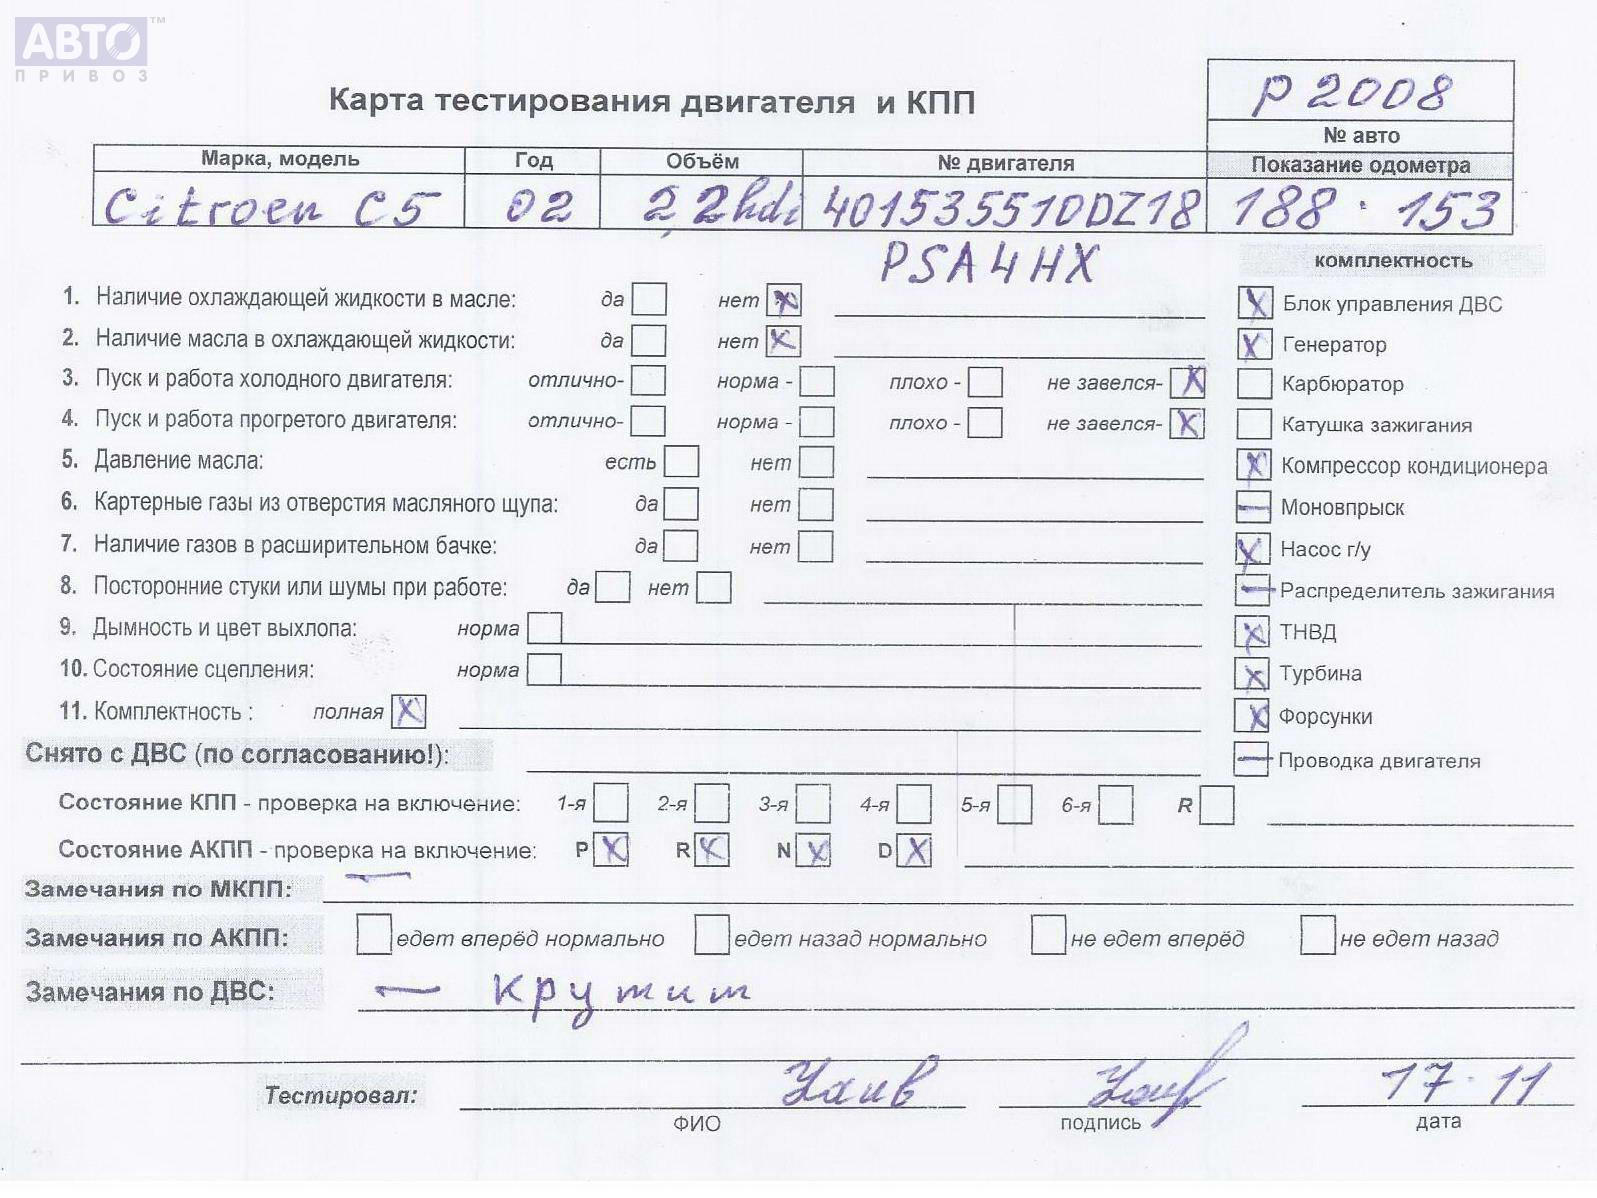 АВТО™
ПРИВОЗ
Карта тестирования двигателя и КПП
P 2008
№ авто
Марка, модель Год Объём № двигателя Показание одометра
Citroen C5 02 2,2hdi 401535510DZ18 188 · 153
PSA4HX
комплектность
1. Наличие охлаждающей жидкости в масле: да нет x
x Блок управления ДВС
2. Наличие масла в охлаждающей жидкости: да нет x
x Генератор
3. Пуск и работа холодного двигателя: отлично- норма - плохо - не завелся- x
Карбюратор
4. Пуск и работа прогретого двигателя: отлично- норма - плохо - не завелся- x
Катушка зажигания
5. Давление масла: есть нет
x Компрессор кондиционера
6. Картерные газы из отверстия масляного щупа: да нет
— Моновпрыск
7. Наличие газов в расширительном бачке: да нет
x Насос г/у
8. Посторонние стуки или шумы при работе: да нет
— Распределитель зажигания
9. Дымность и цвет выхлопа: норма
x ТНВД
10. Состояние сцепления: норма
x Турбина
11. Комплектность : полная x
x Форсунки
Снято с ДВС (по согласованию!):
— Проводка двигателя
Состояние КПП - проверка на включение: 1-я 2-я 3-я 4-я 5-я 6-я R
Состояние АКПП - проверка на включение: P x R x N x D x
Замечания по МКПП: —
Замечания по АКПП: едет вперёд нормально едет назад нормально не едет вперёд не едет назад
Замечания по ДВС: — крутит
Тестировал: 17·11
ФИО подпись дата